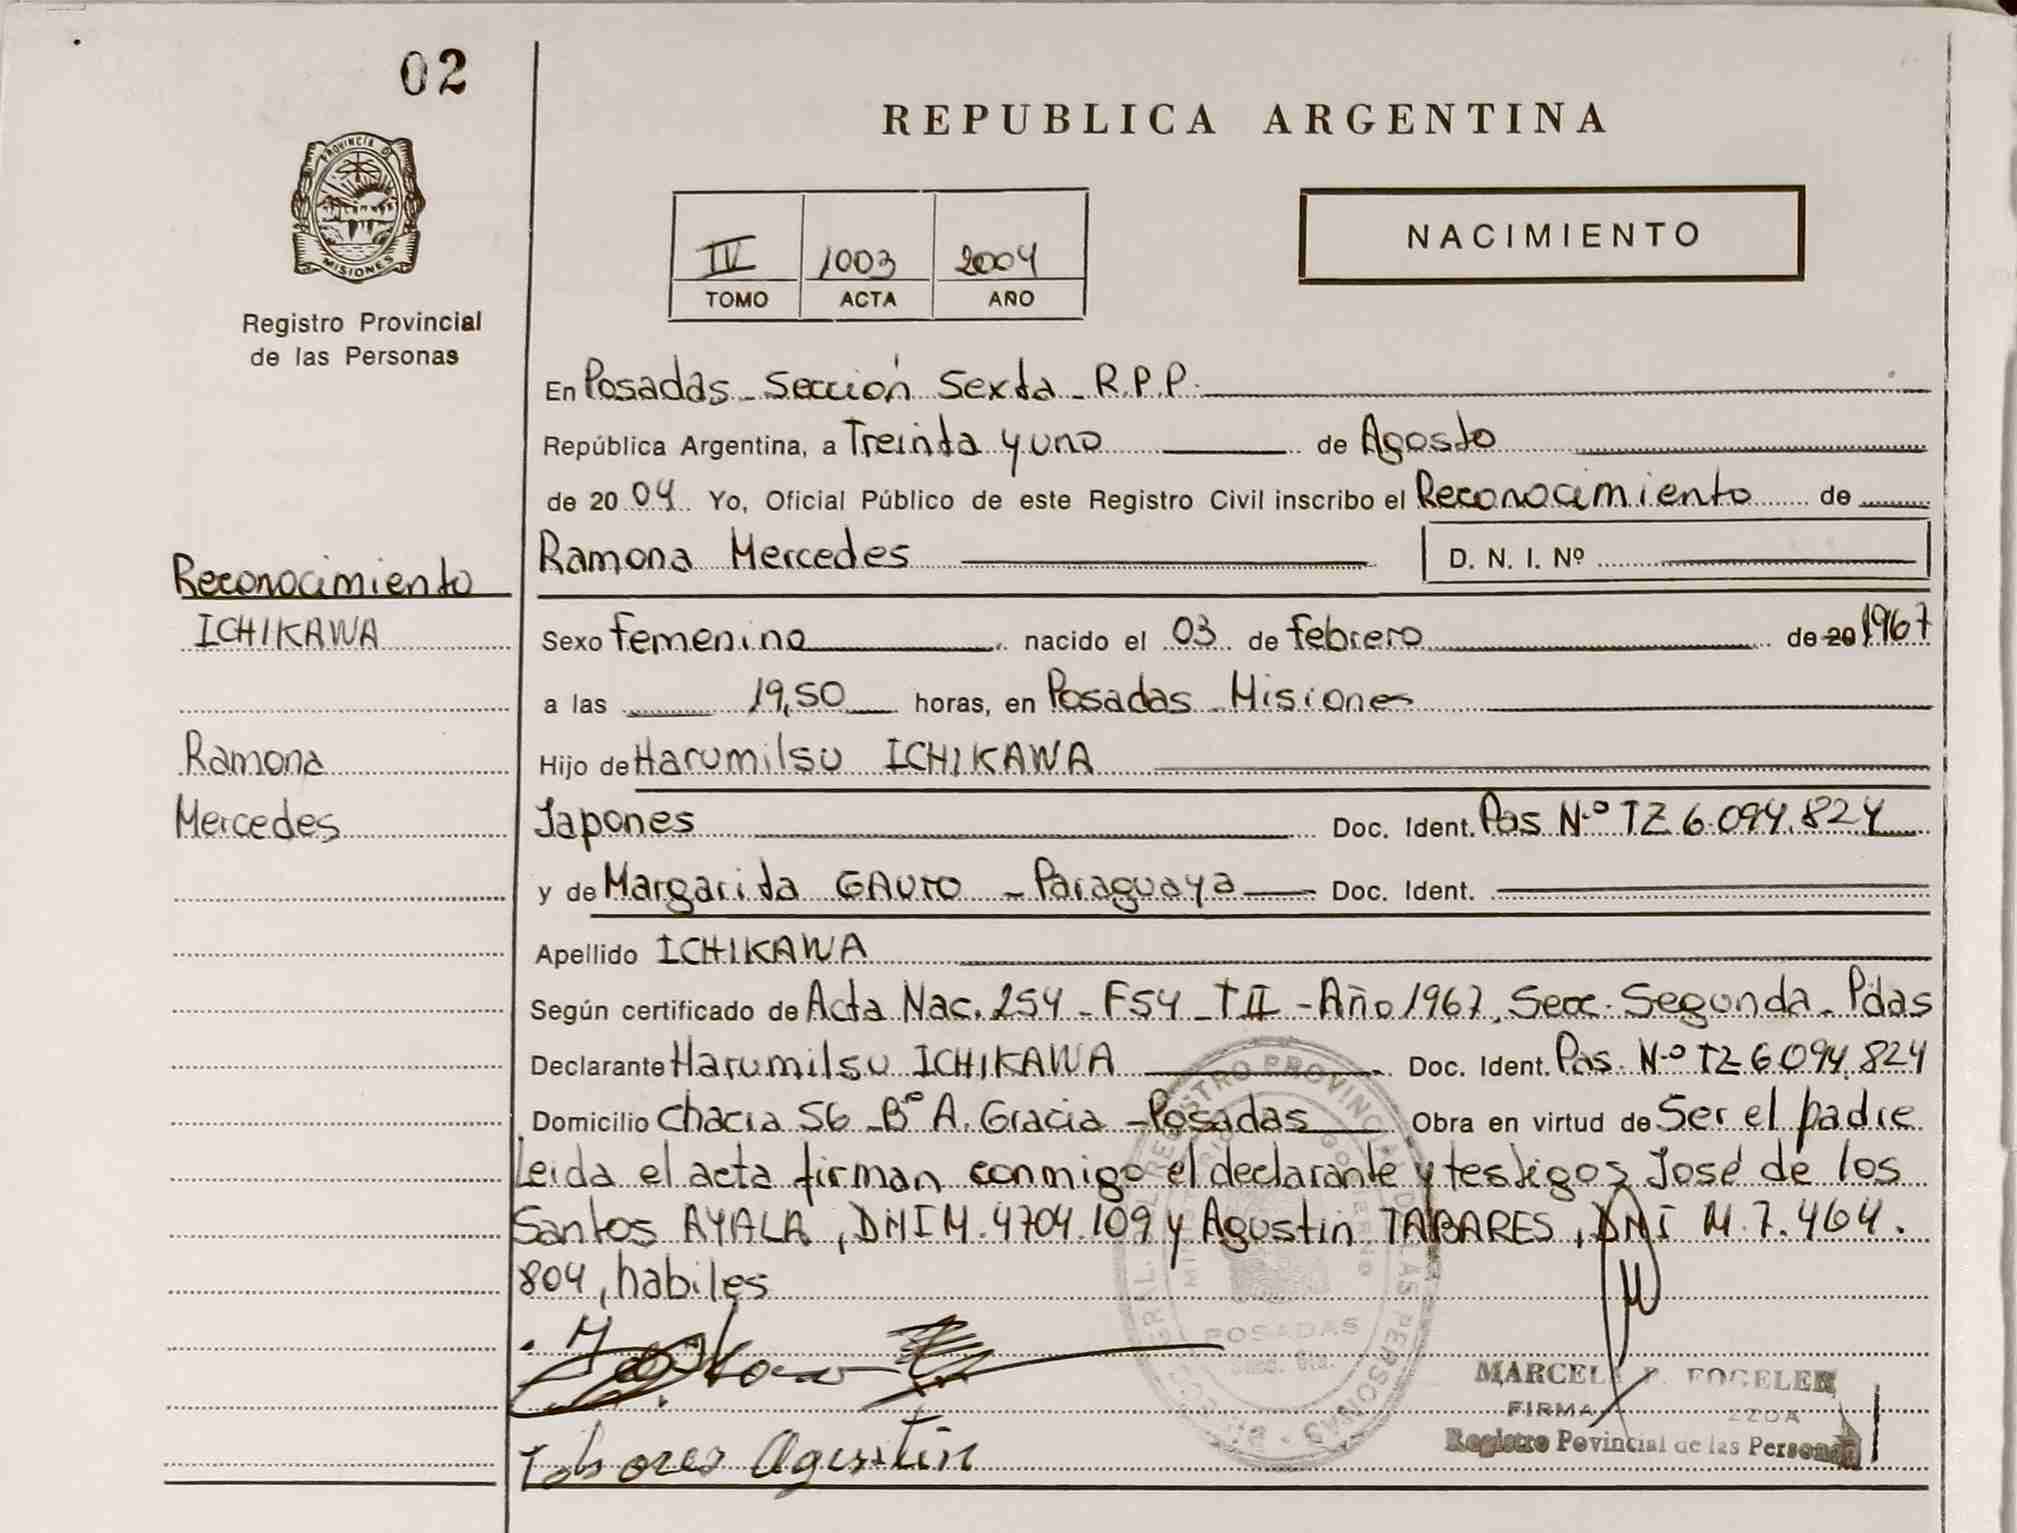 02
REPUBLICA ARGENTINA
PROVINCIA D
MISIONES
Registro Provincial
de las Personas
NACIMIENTO
IV 1003 2004
TOMO ACTA AÑO
En Posadas - Sección Sexta - R.P.P.
República Argentina, a Treinta y uno de Agosto
de 2004 Yo, Oficial Público de este Registro Civil inscribo el Reconocimiento de
Ramona Mercedes D. N. I. Nº
Reconocimiento
ICHIKAWA
Ramona
Mercedes
Sexo Femenino nacido el 03 de Febrero de 20 1967
a las 19,50 horas, en Posadas - Misiones
Hijo de Harumilsu ICHIKAWA
Japones Doc. Ident. Pas Nº TZ 6.094.824
y de Margarita GAUTO - Paraguaya Doc. Ident.
Apellido ICHIKAWA
Según certificado de Acta Nac. 254 - F54 - TII - Año 1967, Secc. Segunda - Pdas
Declarante Harumilsu ICHIKAWA Doc. Ident. Pas. Nº TZ 6.094.824
Domicilio Chacra 56 - Bº A. Gracia - Posadas Obra en virtud de Ser el padre
Leida el acta firman conmigo el declarante y testigos José de los
Santos AYALA, DNI M. 4704.109 y Agustin TABARES, DNI M. 7.464.
804, habiles
POSADAS
MARCEL FOGELER
FIRMA
Registro Povincial de las Personas
Tabares Agustin